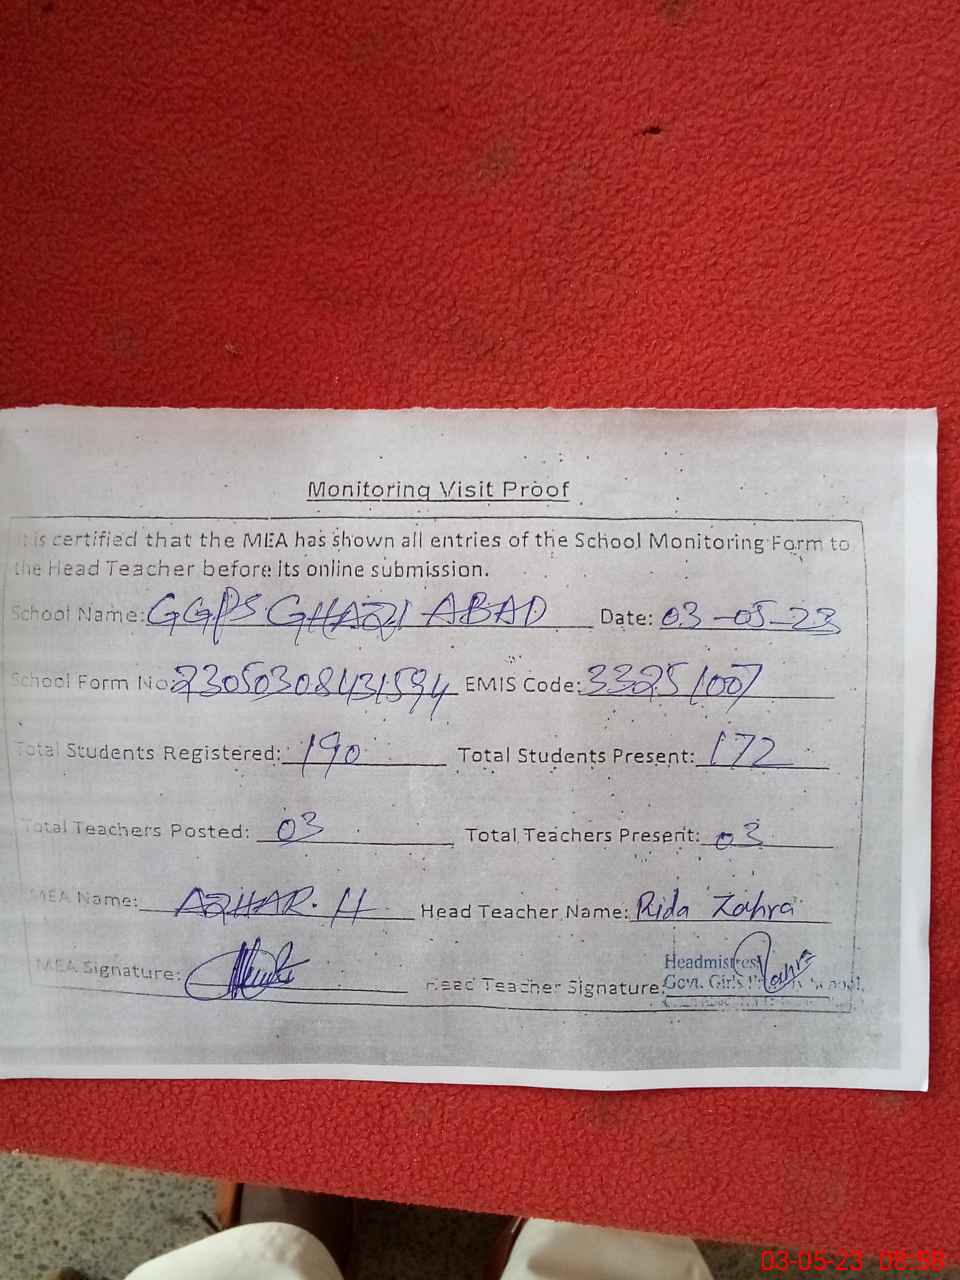 Monitoring Visit Proof
It is certified that the MEA has shown all entries of the School Monitoring Form to
the Head Teacher before its online submission.
School Name: GGPS GHAZI ABAD Date: 03-05-23
School Form No: 23050308431594 EMIS Code: 33251007
Total Students Registered: 190 Total Students Present: 172
Total Teachers Posted: 03 Total Teachers Present: 03
MEA Name: AZHAR. H Head Teacher Name: Rida Zahra
MEA Signature: Head Teacher Signature: Zahra
Headmistress
Govt. Girls Primary School,
03-05-23 08:58